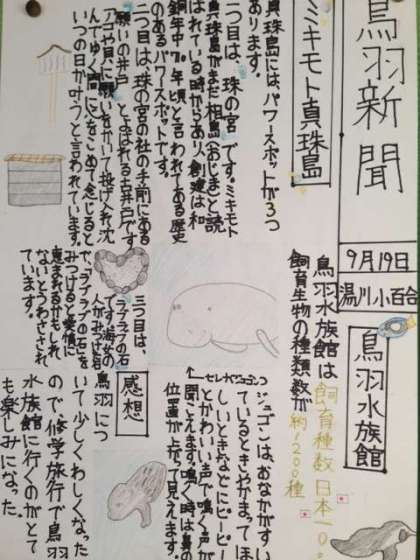 鳥羽新聞
9月19日
湯川小百合
ミキモト真珠島
真珠島には、パワースポットが3つ
あります。
一つ目は、珠の宮です。ミキモト
真珠島がまだ相島(おじま)と読
ばれている時からあり、創建は和
銅年中70年頃と言われてある歴史
のあるパワースポットです。
二つ目は、珠の宮の社の手前にある
願いの井戸とよばれる古井戸です
アコヤ貝に願いをかいて投げ入れ沈
んでゆく間に心をこめて念じると
いつの日か叶うと言われています。
三つ目は、
「ラブラブの石」
です。海女の
人がみつけた岩
で、「ラブラブの石」を
みつけると愛情に
恵まれるかもしれ
ないとうわさされ
ています。
鳥羽水族館
鳥羽水族館は
飼育種数日本一○
飼育生物の種類数が
約1200種
←セレナ(ジュゴン)
ジュゴンは、おなかがすい
ているときやかまってほ
しいときなどにピーピー
とかわいい声で鳴く声が
聞こえます。鳴く時は鼻の
位置が上がって見えます。
感想
鳥羽につ
いて少しくわしくなった
ので、修学旅行で鳥羽
水族館に行くのがとて
も楽しみになった